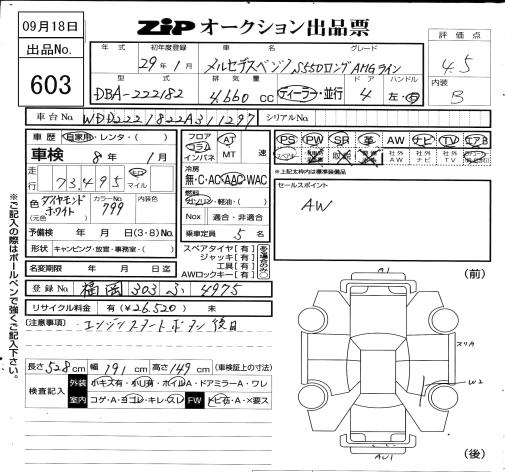 09月18日
出品No.
603
ZIP オークション出品票
評価点
4.5
内装
B
年式 初年度登録 車名 グレード
29年1月 メルセデスベンツ S550ロング AMGライン
型式 排気量 ドア ハンドル
DBA-222182 4.660 cc ディーラー・並行 4 左・右
車台No. WDD2221822A311297 シリアルNo.
車歴 自家用・レンタ・( )
車検 8年 1月
走行 73,495 km マイル
色 (元色) ダイヤモンドホワイト カラーNo. 799 内装色
予備検 年 月 日(3・8)No.
形状 キャンピング・放宣・事務室・( )
名変期限 年 月 日迄
フロア コラム インパネ AT MT 速
冷房 無・C・AC・AAC・WAC
燃料 ガソリン・軽油・( )
Nox 適合・非適合
乗車定員 5 名
スペアタイヤ[有]
ジャッキ[有]
工具[有]
AWロックキー[有]
ある場合のみ○
PS PW SR 革 AW ナビ TV エアB
社外AW 社外ナビ 社外TV
*上記太枠内は標準装備品
セールスポイント
AW
登録No. 福岡 303 ふ 4975
リサイクル料金 有(¥26.520) 未
(注意事項) エンジンスタートボタン 後日
長さ 528 cm 幅 191 cm 高さ 149 cm (車検証上の寸法)
検査記入 外装 小キズ有・小U有・ホイルA・ドアミラーA・ワレ
室内 コゲ・A・ヨゴレ・キレ・スレ FW トビ石・A・×要ス
※ご記入の際はボールペンで強くご記入下さい。
(前)
A1
スリA
W2
AU1
(後)